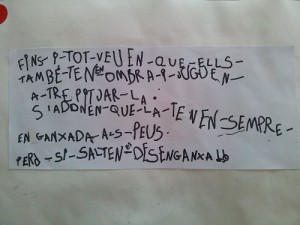 FINS I-TOT-VEUEN-QUE-ELLS-
TAMBÉ-TENEN OMBRA-I-JUGUEN-
A-TREPITJAR-LA.
S'ADONEN-QUE-LA-TENEN-SEMPRE-
ENGANXADA-ALS-PEUS.
PERÒ-SI-SALTEN-ES DESENGANXA